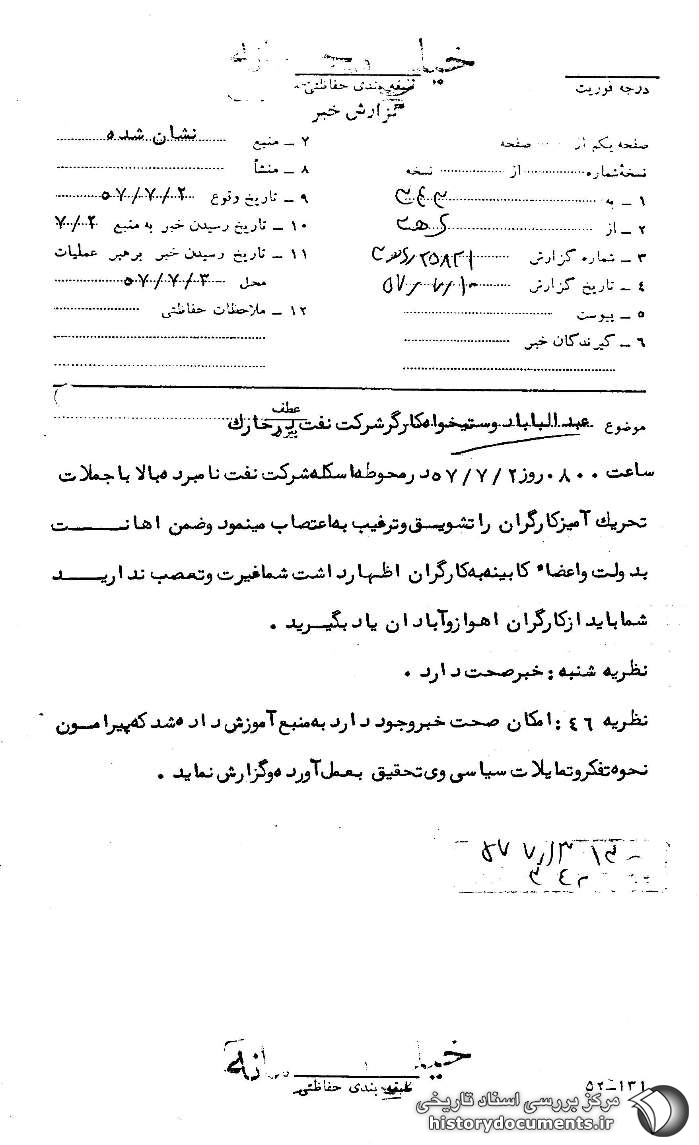 خیلی محرمانه
طبقه بندی حفاظتی
درجه فوریت
گزارش خبر
صفحه یکم از ...... صفحه
نسخه شماره ............ از ............ نسخه
۱ ـ به
۲ ـ از
۳ ـ شماره گزارش
۴ ـ تاریخ گزارش ۵۷/۷/۱۰
۵ ـ پیوست
۶ ـ گیرندگان خبر
۷ ـ منبع نشان شده
۸ ـ منشأ
۹ ـ تاریخ وقوع ۵۷/۷/۲
۱۰ ـ تاریخ رسیدن خبر به منبع ۷/۲
۱۱ ـ تاریخ رسیدن خبر برهبر عملیات
محل ۵۷/۷/۳
۱۲ ـ ملاحظات حفاظتی
موضوع عبدالباباد وستیخواه کارگر شرکت نفت در خارك
عطف
پیرو
ساعت ۰۸۰۰ روز ۵۷/۷/۲ در محوطه اسکله شرکت نفت نامبرده بالا با جملات
تحریك آمیز کارگران را تشویق و ترغیب به اعتصاب مینمود و ضمن اهانت
بدولت و اعضاء کابینه به کارگران اظهار داشت شما غیرت و تعصب ندارید
شما باید از کارگران اهواز و آبادان یاد بگیرید .
نظریه شنبه : خبر صحت دارد .
نظریه ٤٦ : امکان صحت خبر وجود دارد به منبع آموزش داده شد که پیرامون
نحوه تفکر و تمایلات سیاسی وی تحقیق بعمل آورده و گزارش نماید .
خیلی محرمانه
طبقه بندی حفاظتی
۵۲-۱۳۱
مرکز بررسی اسناد تاریخی
historydocuments.ir